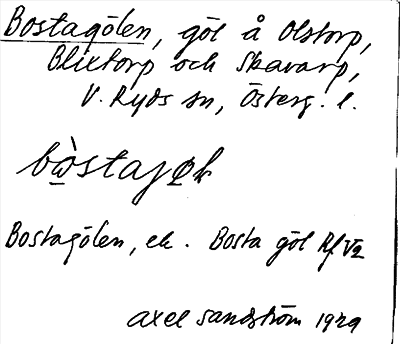 Bostagölen, göl å Olstorp,
Blixtorp och Skavarp,
V. Ryds sn, Österg. l.
bòstajøk
Bostagölen, ek. Bosta göl Rf V2
Axel Sandström 1929